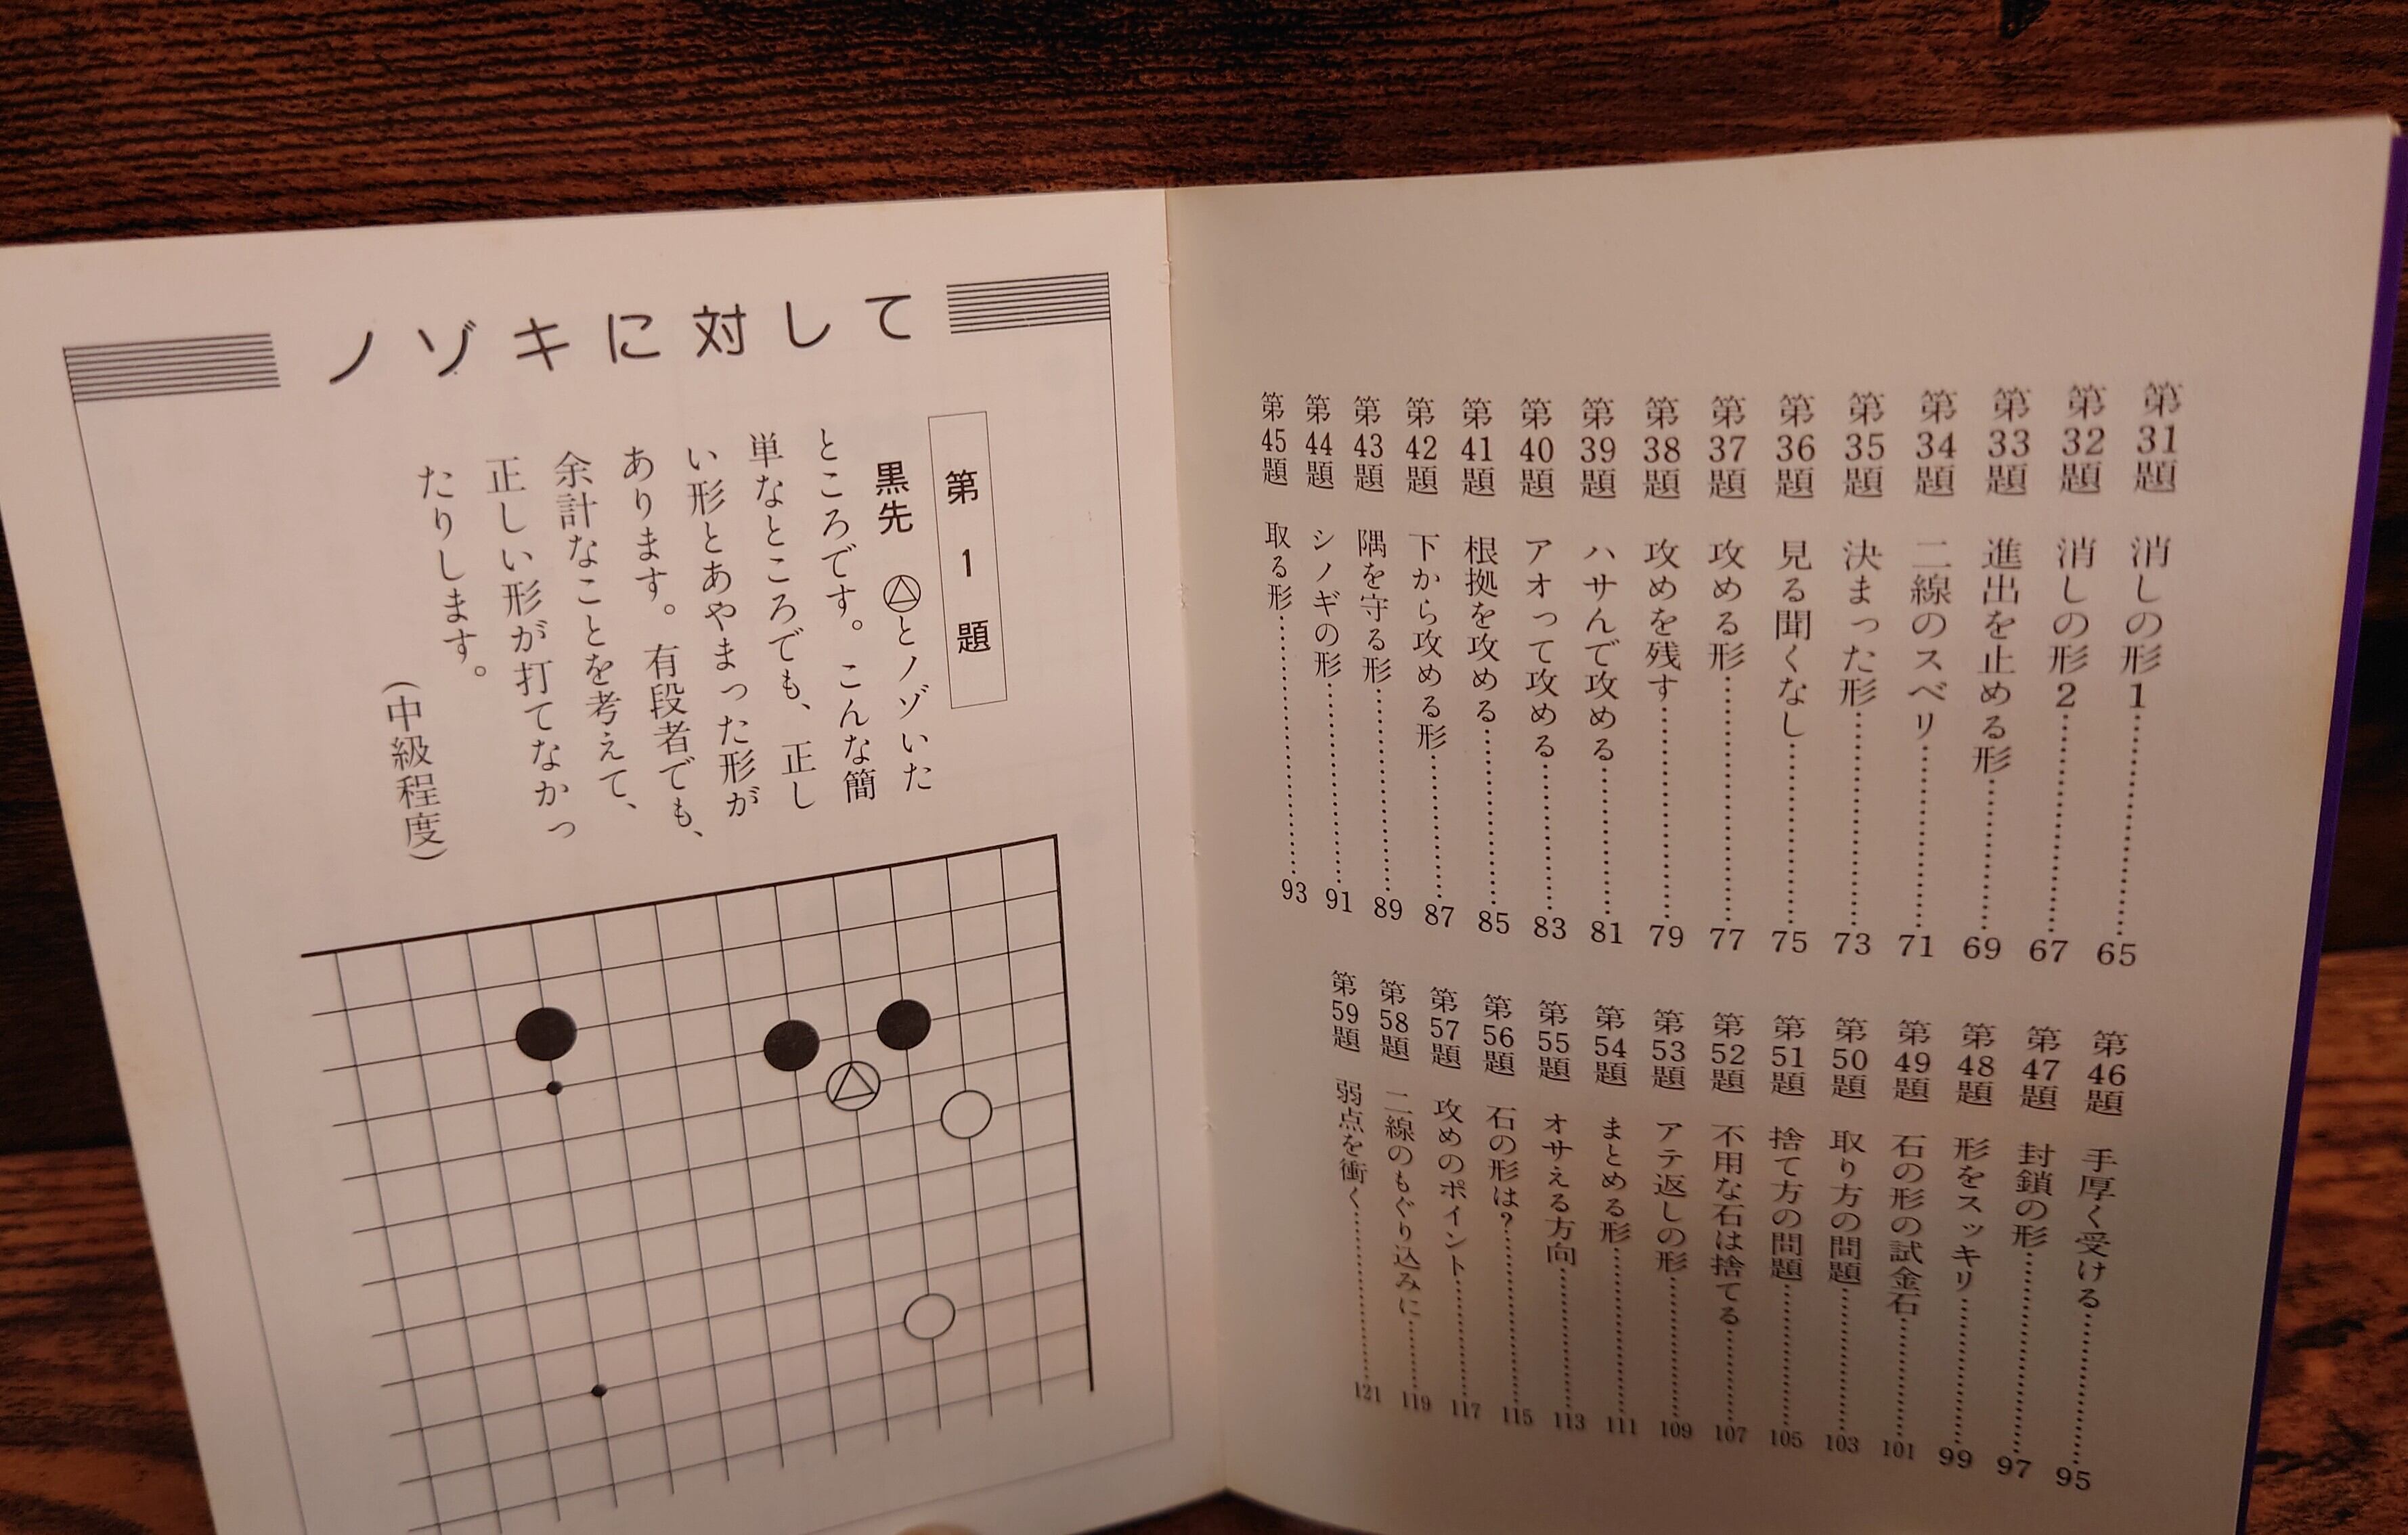 第31題 消しの形1……………65
第32題 消しの形2……………67
第33題 進出を止める形……………69
第34題 二線のスベリ……………71
第35題 決まった形……………73
第36題 見る聞くなし……………75
第37題 攻める形……………77
第38題 攻めを残す……………79
第39題 ハサんで攻める……………81
第40題 アオって攻める……………83
第41題 根拠を攻める……………85
第42題 下から攻める形……………87
第43題 隅を守る形……………89
第44題 シノギの形……………91
第45題 取る形……………93
第46題 手厚く受ける……………95
第47題 封鎖の形……………97
第48題 形をスッキリ……………99
第49題 石の形の試金石……………101
第50題 取り方の問題……………103
第51題 捨て方の問題……………105
第52題 不用な石は捨てる……………107
第53題 アテ返しの形……………109
第54題 まとめる形……………111
第55題 オサえる方向……………113
第56題 石の形は?……………115
第57題 攻めのポイント……………117
第58題 二線のもぐり込みに……………119
第59題 弱点を衝く……………121
ノゾキに対して
第1題
黒先 △とノゾいた
ところです。こんな簡
単なところでも、正し
い形とあやまった形が
あります。有段者でも、
余計なことを考えて、
正しい形が打てなかっ
たりします。
(中級程度)